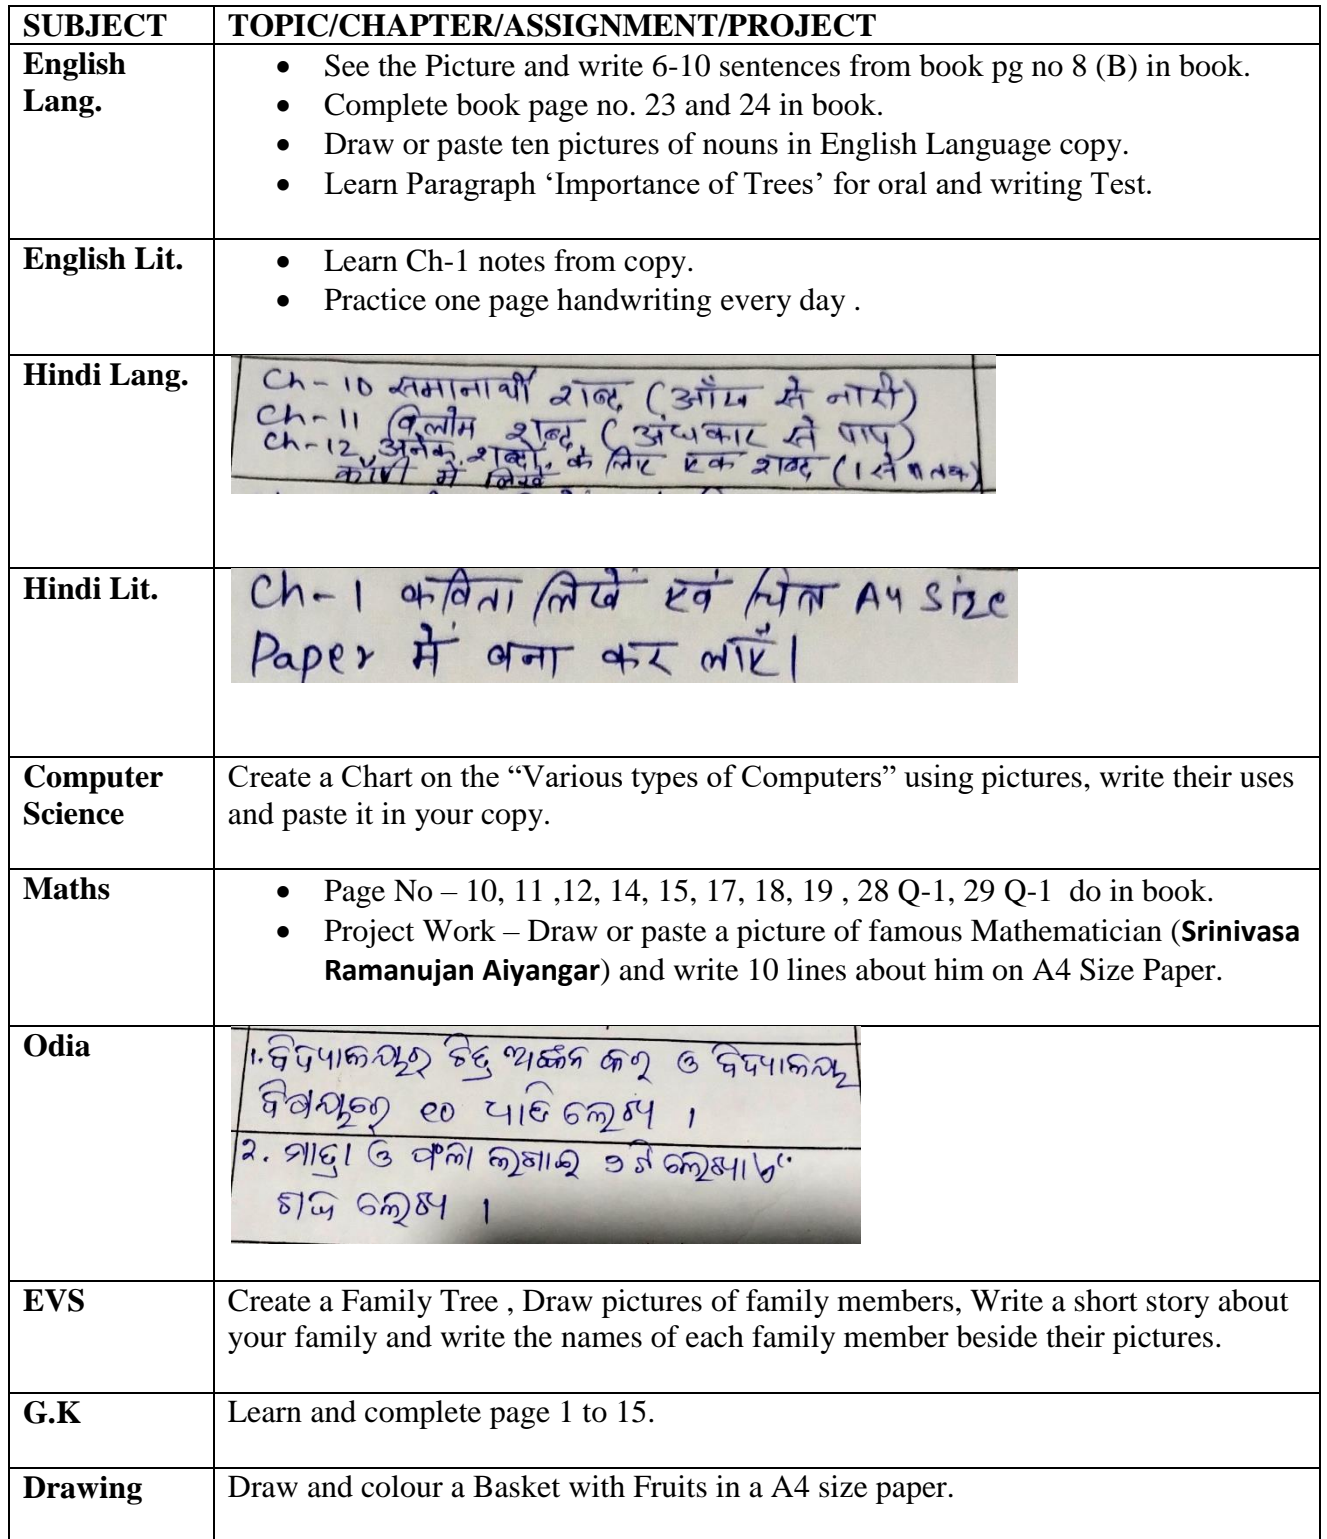 SUBJECT TOPIC/CHAPTER/ASSIGNMENT/PROJECT
English Lang.
• See the Picture and write 6-10 sentences from book pg no 8 (B) in book.
• Complete book page no. 23 and 24 in book.
• Draw or paste ten pictures of nouns in English Language copy.
• Learn Paragraph ‘Importance of Trees’ for oral and writing Test.
English Lit.
• Learn Ch-1 notes from copy.
• Practice one page handwriting every day .
Hindi Lang.
Ch-10 समानार्थी शब्द (आँख से नारी)
Ch-11 विलोम शब्द (अंधकार से पाप)
Ch-12 अनेक शब्दों के लिए एक शब्द (1 से तक)
कॉपी में लिखें
Hindi Lit.
Ch-1 कविता लिखें एवं चित्र A4 Size
Paper में बना कर लाएँ।
Computer Science
Create a Chart on the “Various types of Computers” using pictures, write their uses
and paste it in your copy.
Maths
• Page No – 10, 11 ,12, 14, 15, 17, 18, 19 , 28 Q-1, 29 Q-1 do in book.
• Project Work – Draw or paste a picture of famous Mathematician (Srinivasa
Ramanujan Aiyangar) and write 10 lines about him on A4 Size Paper.
Odia
୧. ବିଦ୍ୟାଳୟର ଚିତ୍ର ଅଙ୍କନ କର ଓ ବିଦ୍ୟାଳୟ
ବିଷୟରେ ୧୦ ଧାଡି ଲେଖ ।
୨. ମାତ୍ରା ଓ ଫଳା ଲଗାଇ ଲେଖାଏଁ
ଶବ୍ଦ ଲେଖ ।
EVS
Create a Family Tree , Draw pictures of family members, Write a short story about
your family and write the names of each family member beside their pictures.
G.K Learn and complete page 1 to 15.
Drawing Draw and colour a Basket with Fruits in a A4 size paper.